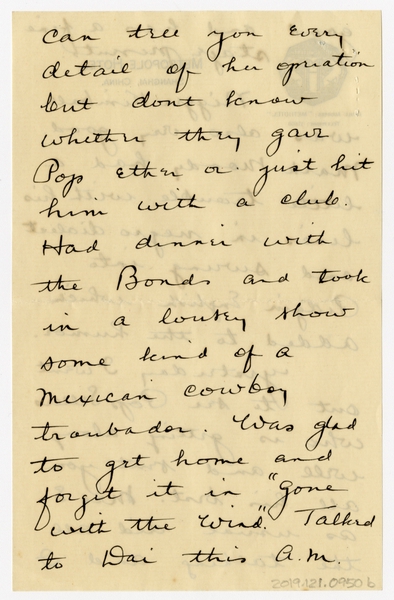 can tell you every
detail of her opriation
but dont know
whether they gave
Pop Ether or just hit
him with a club.
Had dinner with
the Bonds and took
in a lousey show
some kind of a
Mexican cowboy
troubador. Was glad
to get home and
forget it in "Gone
with the Wind". Talked
to Dai this A.M.
2019.121.0950b